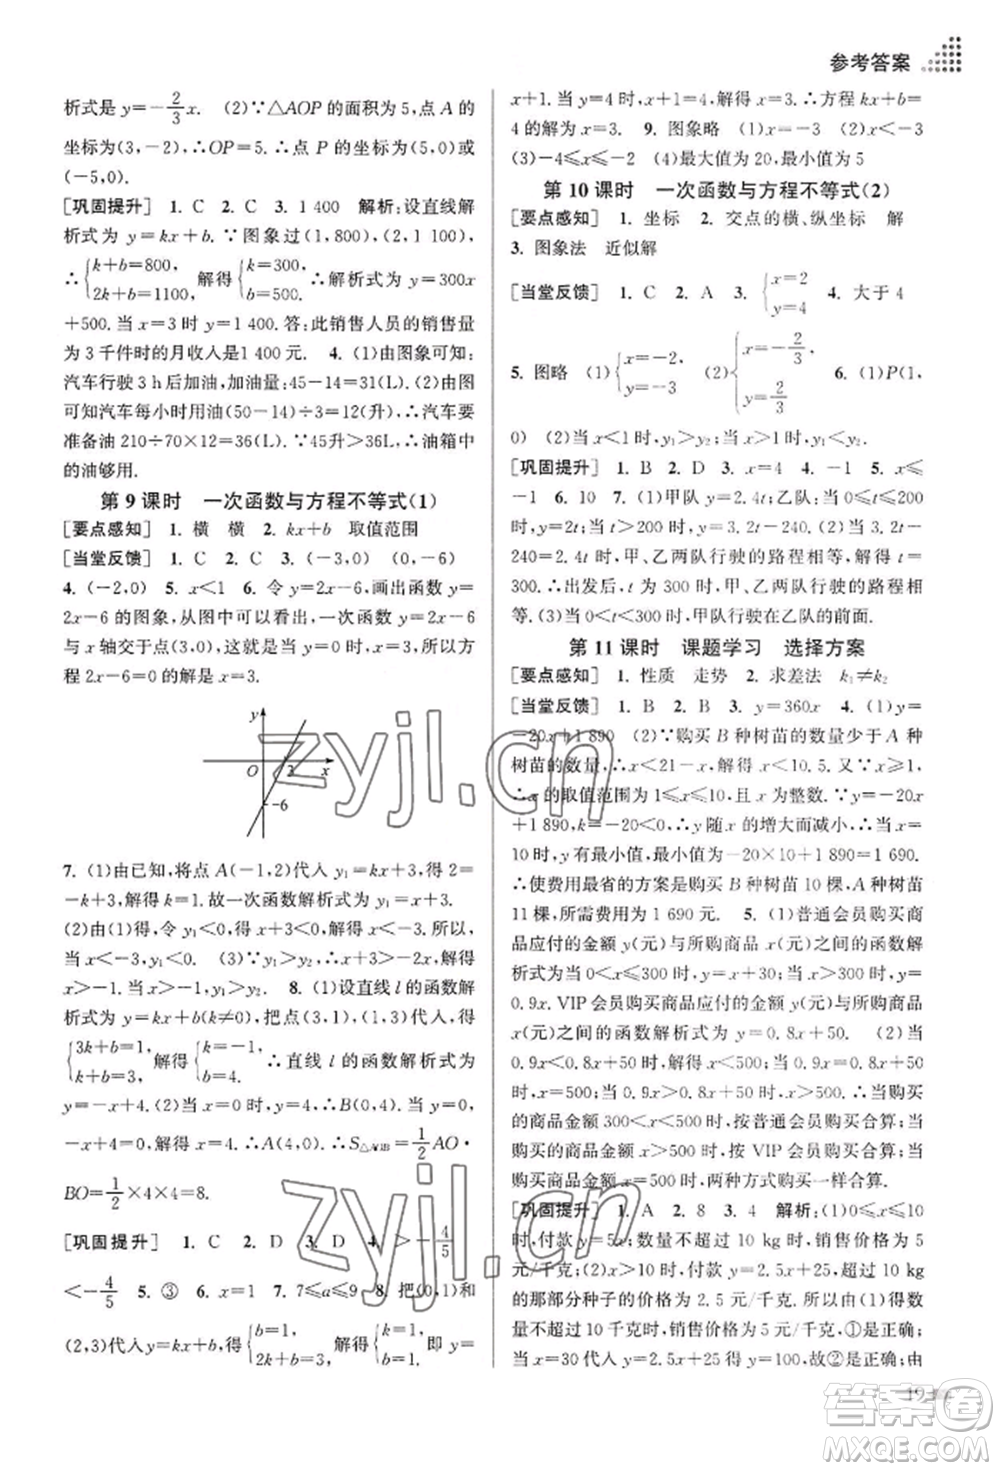 参考答案
析式是y=-2/3x. (2)∵△AOP的面积为5,点A的
坐标为(3,-2),∴OP=5.∴点P的坐标为(5,0)或
(-5,0).
[巩固提升] 1. C 2. C 3. 1 400 解析:设直线解
析式为y=kx+b.∵图象过(1,800),(2,1 100),
∴{k+b=800, 2k+b=1100, 解得{k=300, b=500. ∴解析式为y=300x
+500.当x=3时y=1 400.答:此销售人员的销售量
为3千件时的月收入是1 400元. 4. (1)由图象可知:
汽车行驶3 h后加油,加油量:45-14=31(L). (2)由图
可知汽车每小时用油(50-14)÷3=12(升),∴汽车要
准备油210÷70×12=36(L).∵45升>36L,∴油箱中
的油够用.
第9课时 一次函数与方程不等式(1)
[要点感知] 1. 横 横 2. kx+b 取值范围
[当堂反馈] 1. C 2. C 3. (-3,0) (0,-6)
4. (-2,0) 5. x<1 6. 令y=2x-6,画出函数y=
2x-6的图象,从图象可以看出,一次函数y=2x-6
与x轴交于点(3,0),这就是说,当x=3时,y=0,∴方
程2x-6=0的解是x=3.
y
O 3 x
-6
7. (1)由已知,将点A(-1,2)代入y₁=kx+3,得2=
-k+3.解得k=1.故一次函数解析式为y₁=x+3.
(2)由(1)得,令y₁<0,得x+3<0.解得x<-3.所以,当
x<-3时,y₁<0. (3)∵y₁>y₂,∴x+3>-2x.解得
x>-1.∴当x>-1时,y₁>y₂. 8. (1)设直线l的解
析式为y=kx+b(k≠0),把点(3,1),(1,3)代入,得
{3k+b=1, k+b=3, 解得{k=-1, b=4. ∴直线l的函数解析式为
y=-x+4.(2)当x=0时,y=4,∴B(0,4).当y=0时,
-x+4=0,解得x=4.∴A(4,0).∴S△AOB=1/2AO·
BO=1/2×4×4=8.
[巩固提升] 1. C 2. D 3. D 4. >-4/5
<-4/5 5. ③ 6. x=1 7. 7≤a≤9 8. 把(0,1)和
(2,3)代入y=kx+b,得{b=1, 2k+b=3. 解得{b=1, k=1. 即y=
x+1.当y=4时,x+1=4,解得x=3.∴方程kx+b=
4的解为x=3. 9. 图象略 (1)x=-3 (2)x<-3
(3)-4≤x≤-1 (4)最大值为20,最小值为5
第10课时 一次函数与方程不等式(2)
[要点感知] 1. 坐标 2. 交点的横、纵坐标 解
3. 图象法 近似解
[当堂反馈] 1. C 2. A 3. {x=2 y=4 4. 大于4
5. 图略 (1){x=-2, y=-3 (2){x=-2/3, y=2/3 6. (1)P(1,
0) (2)当x<1时,y₁>y₂;当x>1时,y₁<y₂
[巩固提升] 1. B 2. D 3. x=4 4. -1 5. x≤
-1 6. 10 7. (1)甲队:y=2.4t;乙队:当0≤t≤240
时,y=2t;当t>240时,y=3.2t-240. (2)当3.2t-
240=2.4t时,甲、乙两队行驶的路程相等,解得t=
300.∴出发后,当t为300时,甲、乙两队行驶的路程相
等.(3)当0<t<150时,甲队行驶在乙队的前面.
第11课时 课题学习 选择方案
[要点感知] 1. 性质 走势 2. 求差法 k₁≠k₂
[当堂反馈] 1. B 2. B 3. y=360x 4. (1)y=
-20x+1 890 (2)∵购买B种树苗的数量少于A种
树苗的数量,∴x<21-x.解得x<10.5.又∵x≥1,
∴x的取值范围为1≤x≤10,且x为整数.∵y=-20x
+1 890,k=-20<0,∴y随x的增大而减小,∴当x=
10时,y有最小值,最小值为-20×10+1 890=1 690.
∴使费用最省的方案是购买B种树苗10棵,A种树苗
11棵,所需费用为1 690元. 5. (1)普通会员购买商
品应付的金额y(元)与所购商品x(元)之间的函数解
析式为:当0<x≤300时,y=x;当x>300时,y=
0.9x.VIP会员购买商品应付的金额y(元)与所购商品
x(元)之间的函数解析式为y=0.8x+50. (2)当
0.9x<0.8x+50时,解得x<500;当0.9x=0.8x+50
时,x=500;当0.9x>0.8x+50时,x>500.∴当购买
的商品金额300<x<500时,按普通会员购买合算;当
购买的商品金额x>500时,按VIP会员购买合算;当
购买商品金额x=500时,两种方式购买一样合算.
[巩固提升] 1. A 2. 8 3. 4 解析:(1)0≤x≤10
时,付款y=5x,相应千克数,即销售价格为5
元/千克;(2)x>10时,付款y=2.5x+25,超过10 kg
的那部分种子的价格为2.5元/千克,①是正确;由0<
5<10得出,当x=5时,销售价格为5元/千克,②是正确;
当x=30代入y=2.5x+25得y=100,故②正确;由
19